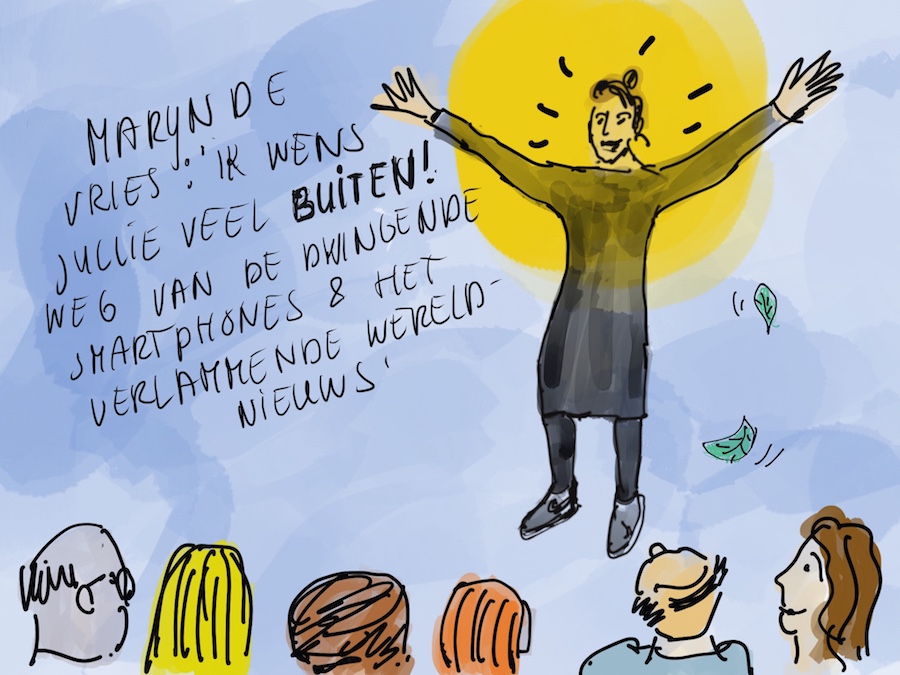 MARIJN DE
VRIES: 'IK WENS
JULLIE VEEL BUITEN!
WEG VAN DE DWINGENDE
SMARTPHONES & HET
VERLAMMENDE WERELD-
NIEUWS'